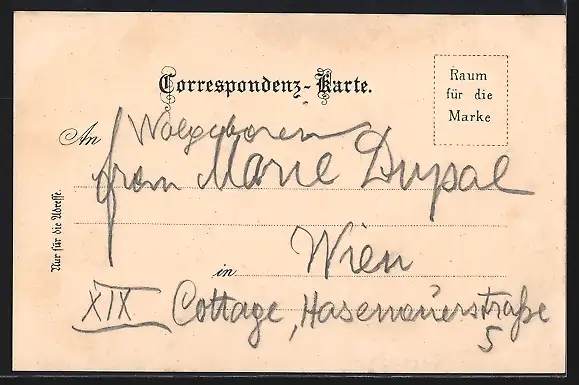 Correspondenz-Karte.
Raum
für die
Marke
An Wolgeboren
frau Marie Dupal
Nur für die Adresse.
in Wien
XIX Cottage, Hasenauerstraße
5